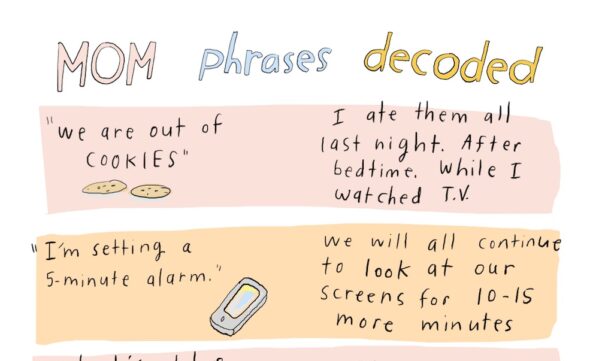 MOM phrases decoded
"we are out of
COOKIES"
I ate them all
last night. After
bedtime. While I
watched T.V.
"I'm setting a
5-minute alarm."
we will all continue
to look at our
screens for 10-15
more minutes